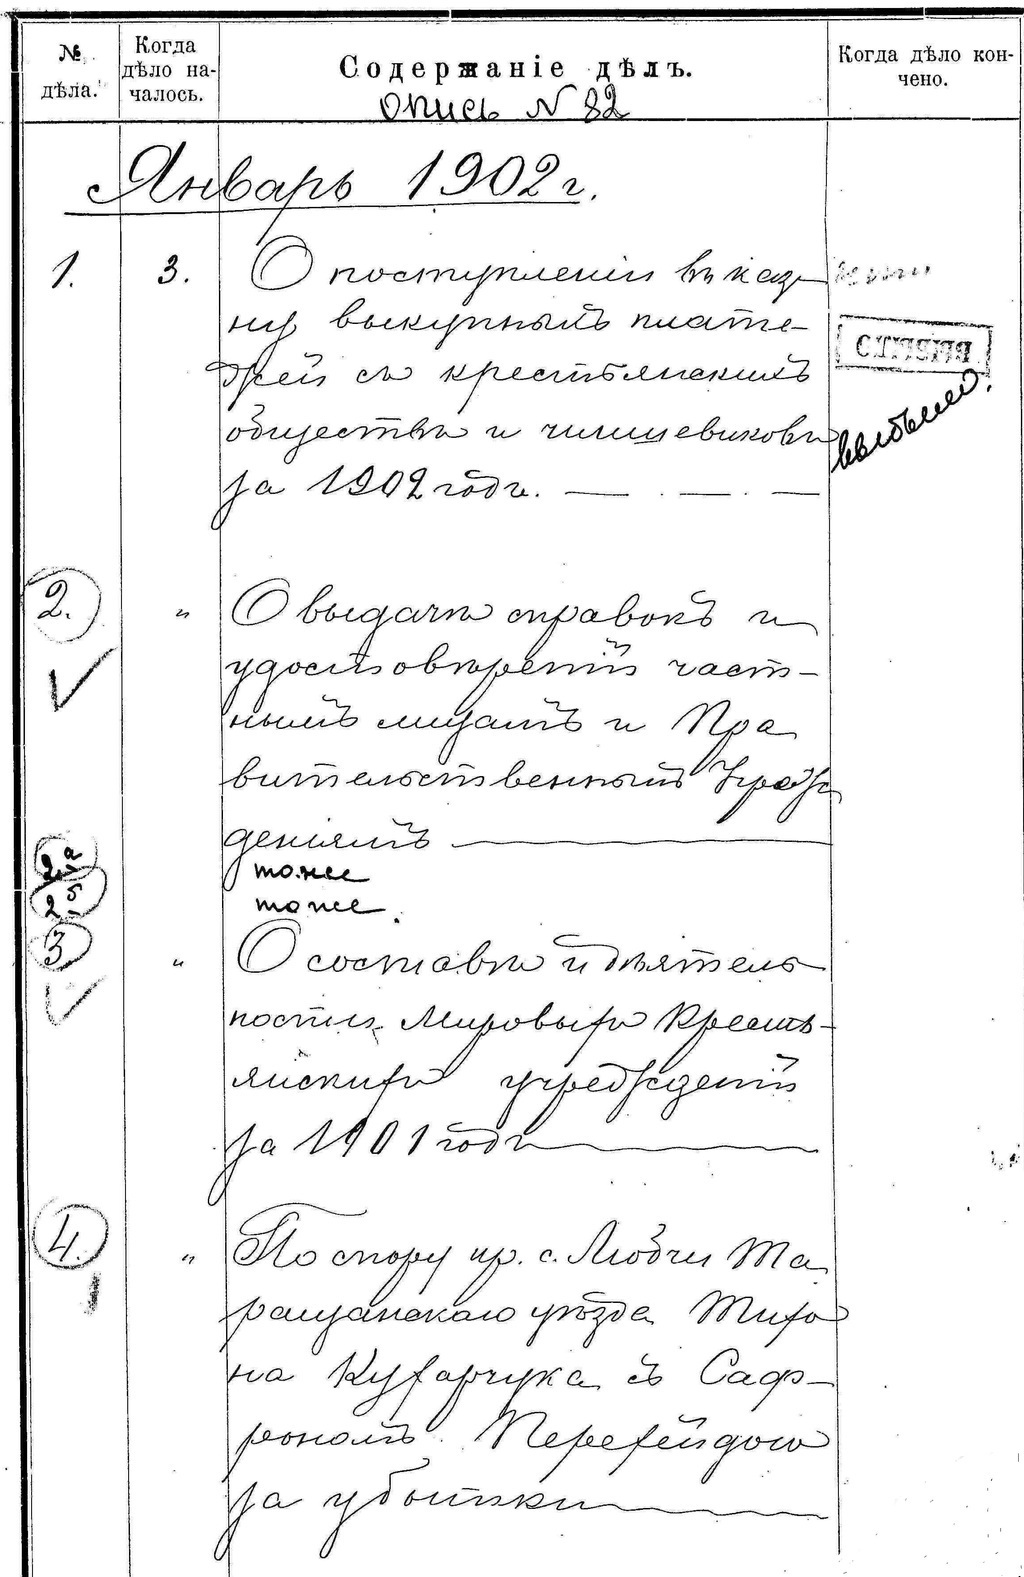 № дѣла.
Когда дѣло на-
чалось.
Содержаніе дѣлъ.
Когда дѣло кон-
чено.
опись N 82
Январь 1902 г.
1. 3. О поступленіи въ каз-
ну выкупныхъ плате-
жей съ крестьянскихъ
обществъ и чиншевиковъ
за 1902 годъ.
ВЫБЫЛО
выбыло.
2. " О выдачѣ справокъ и
удостовѣреній част-
нымъ лицамъ и Пра
вительственнымъ Учреж
деніямъ
2а тоже
2б тоже
3 " О составѣ и дѣятель
ности Мировыхъ Кресть-
янскихъ учрежденій
за 1901 годъ
4. " По спору кр. с. Любчи Та
ращанскаго уѣзда Тихо
на Кухарчука съ Саф-
рономъ Перехейдою
за убытки